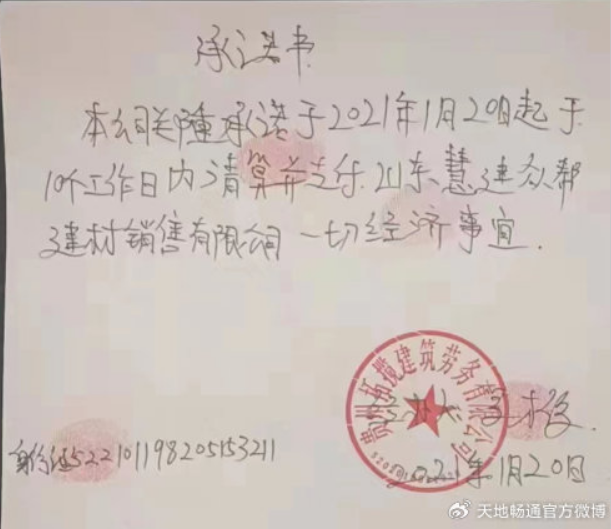 承诺书
本公司郑重承诺于2021年1月20日起于
10个工作日内清算并支付山东慧建众帮
建材销售有限公司一切经济事宜.
贵州拓揽建筑劳务有限公司
身份证522101198205153211
2021年1月20日
@天地畅通官方微博